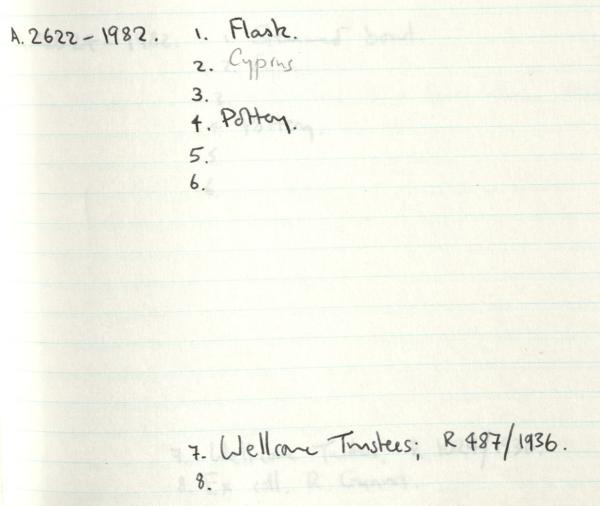 A.2622-1982. 1. Flask.
2. Cyprus
3.
4. Pottery.
5.
6.
7. Wellcome Trustees; R 487/1936.
8.